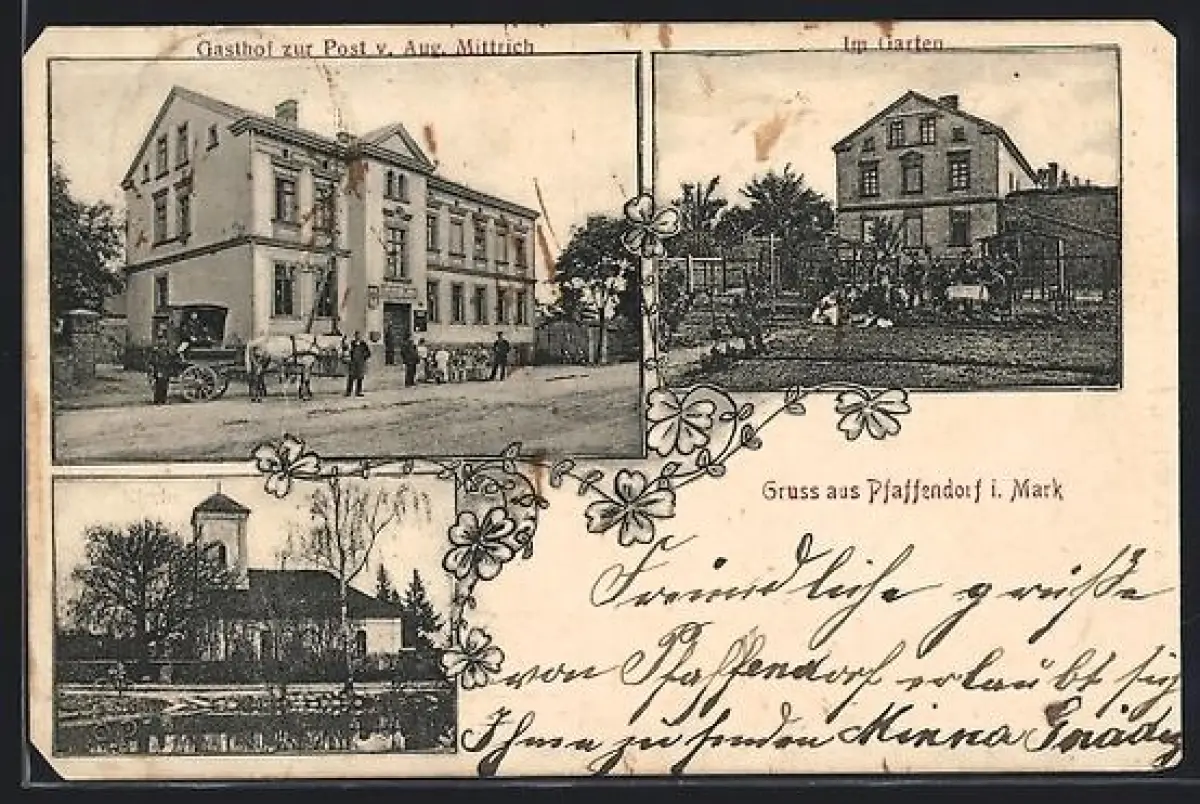 Gasthof zur Post v. Aug. Mittrich
Im Garten
Gruss aus Pfaffendorf i. Mark
Freundliche grüße
von Pfaffendorf erlaubt sig
Ihnen zu senden Minna